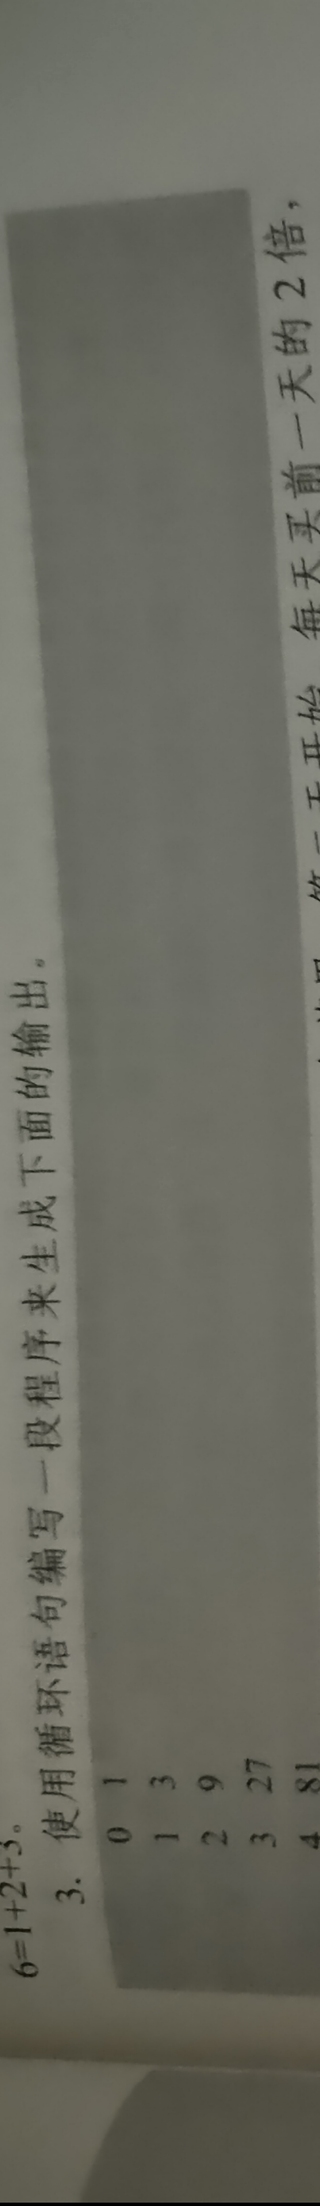 6=1+2+3。
3. 使用循环语句编写一段程序来生成下面的输出。
0 1
1 3
2 9
3 27
4 81
每天买前一天的 2 倍，